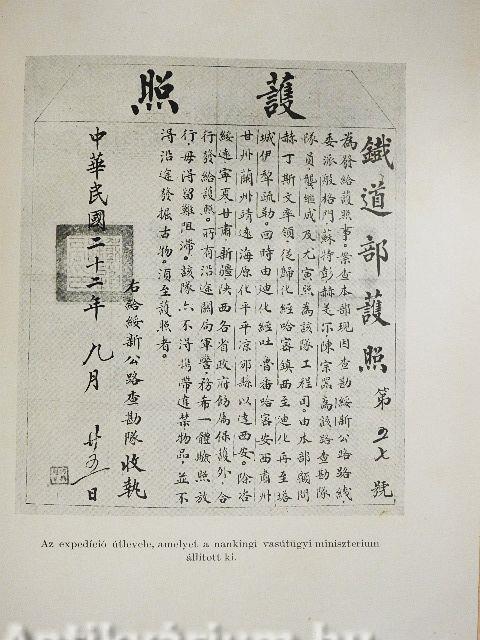 護照
鐵道部護照 第 號
為發給護照事。案查本部現因查勘綏新公路路線、
委派殷格門蘇特彭赫美尔陳宗器為該路查勘隊
隊員龔繼成及尤寅照為該隊工程司。由本部顧問
赫丁斯文率領、從歸化經哈密鎮西至迪化再至塔
城伊犁疏勒。回時由迪化經吐魯番哈密安西肅州
甘州蘭州靖遠海原化平平凉邠縣以達西安。除咨
綏遠寧夏甘肅新疆陝西各省政府飭屬保護外、合
行發給護照。所有沿途關局軍警、務希一體驗照放
行、毋得留難阻滯。該隊亦不得携帶違禁物品、並不
得沿途發掘古物。須至護照者。
右給綏新公路查勘隊收執
中華民國二十二年九月廿五日
Az expedíció útlevele, amelyet a nankingi vasútügyi miniszterium
állított ki.
Antikvárium.hu